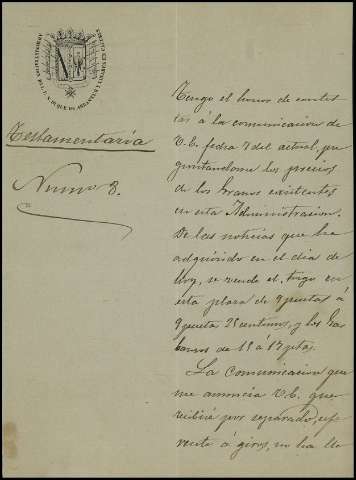 ADMINISTRACION DEL E. S. DUQUE DE ABRANTES Y LINARES EN CACERES
Testamentaría
Num.o 8.
Tengo el honor de contes
tar á la comunicacion de
V.E. fecha 7 del actual, pre
guntandome los precios
de los Granos existentes
en esta Administracion.
De las noticias que he
adquirido en el dia de
hoy, se vende el trigo en
esta plaza de 9 pesetas á
9 pesetas 25 centimos, y los Gar
banzos de 15 á 17 ptas.
La comunicacion que
me anuncia V.E. que
recibiré por separado, refe
rente á giros, no ha lle